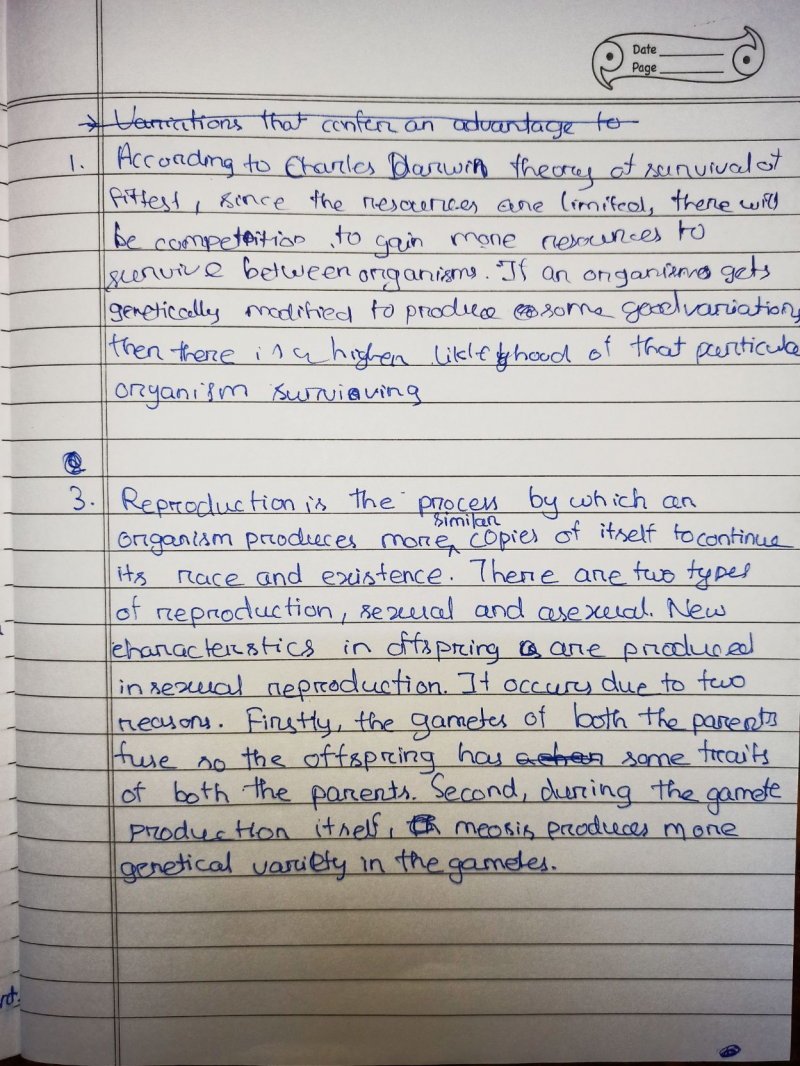 Date
Page
→ Variations that confer an advantage to
1. According to Charles Darwin theory of survival of
fittest, since the resources are limited, there will
be competition to gain more resources to
survive between organisms. If an organism gets
genetically modified to produce some good variation,
then there is a higher likelyhood of that particula
organism surviving
3. Reproduction is the process by which an
similar
organism produces more copies of itself to continue
its race and existence. There are two types
of reproduction, sexual and asexual. New
characteristics in offspring are produced
in sexual reproduction. It occurs due to two
reasons. Firstly, the gametes of both the parents
fuse so the offspring has some traits
of both the parents. Second, during the gamete
production itself, meosis produces more
genetical variety in the gametes.